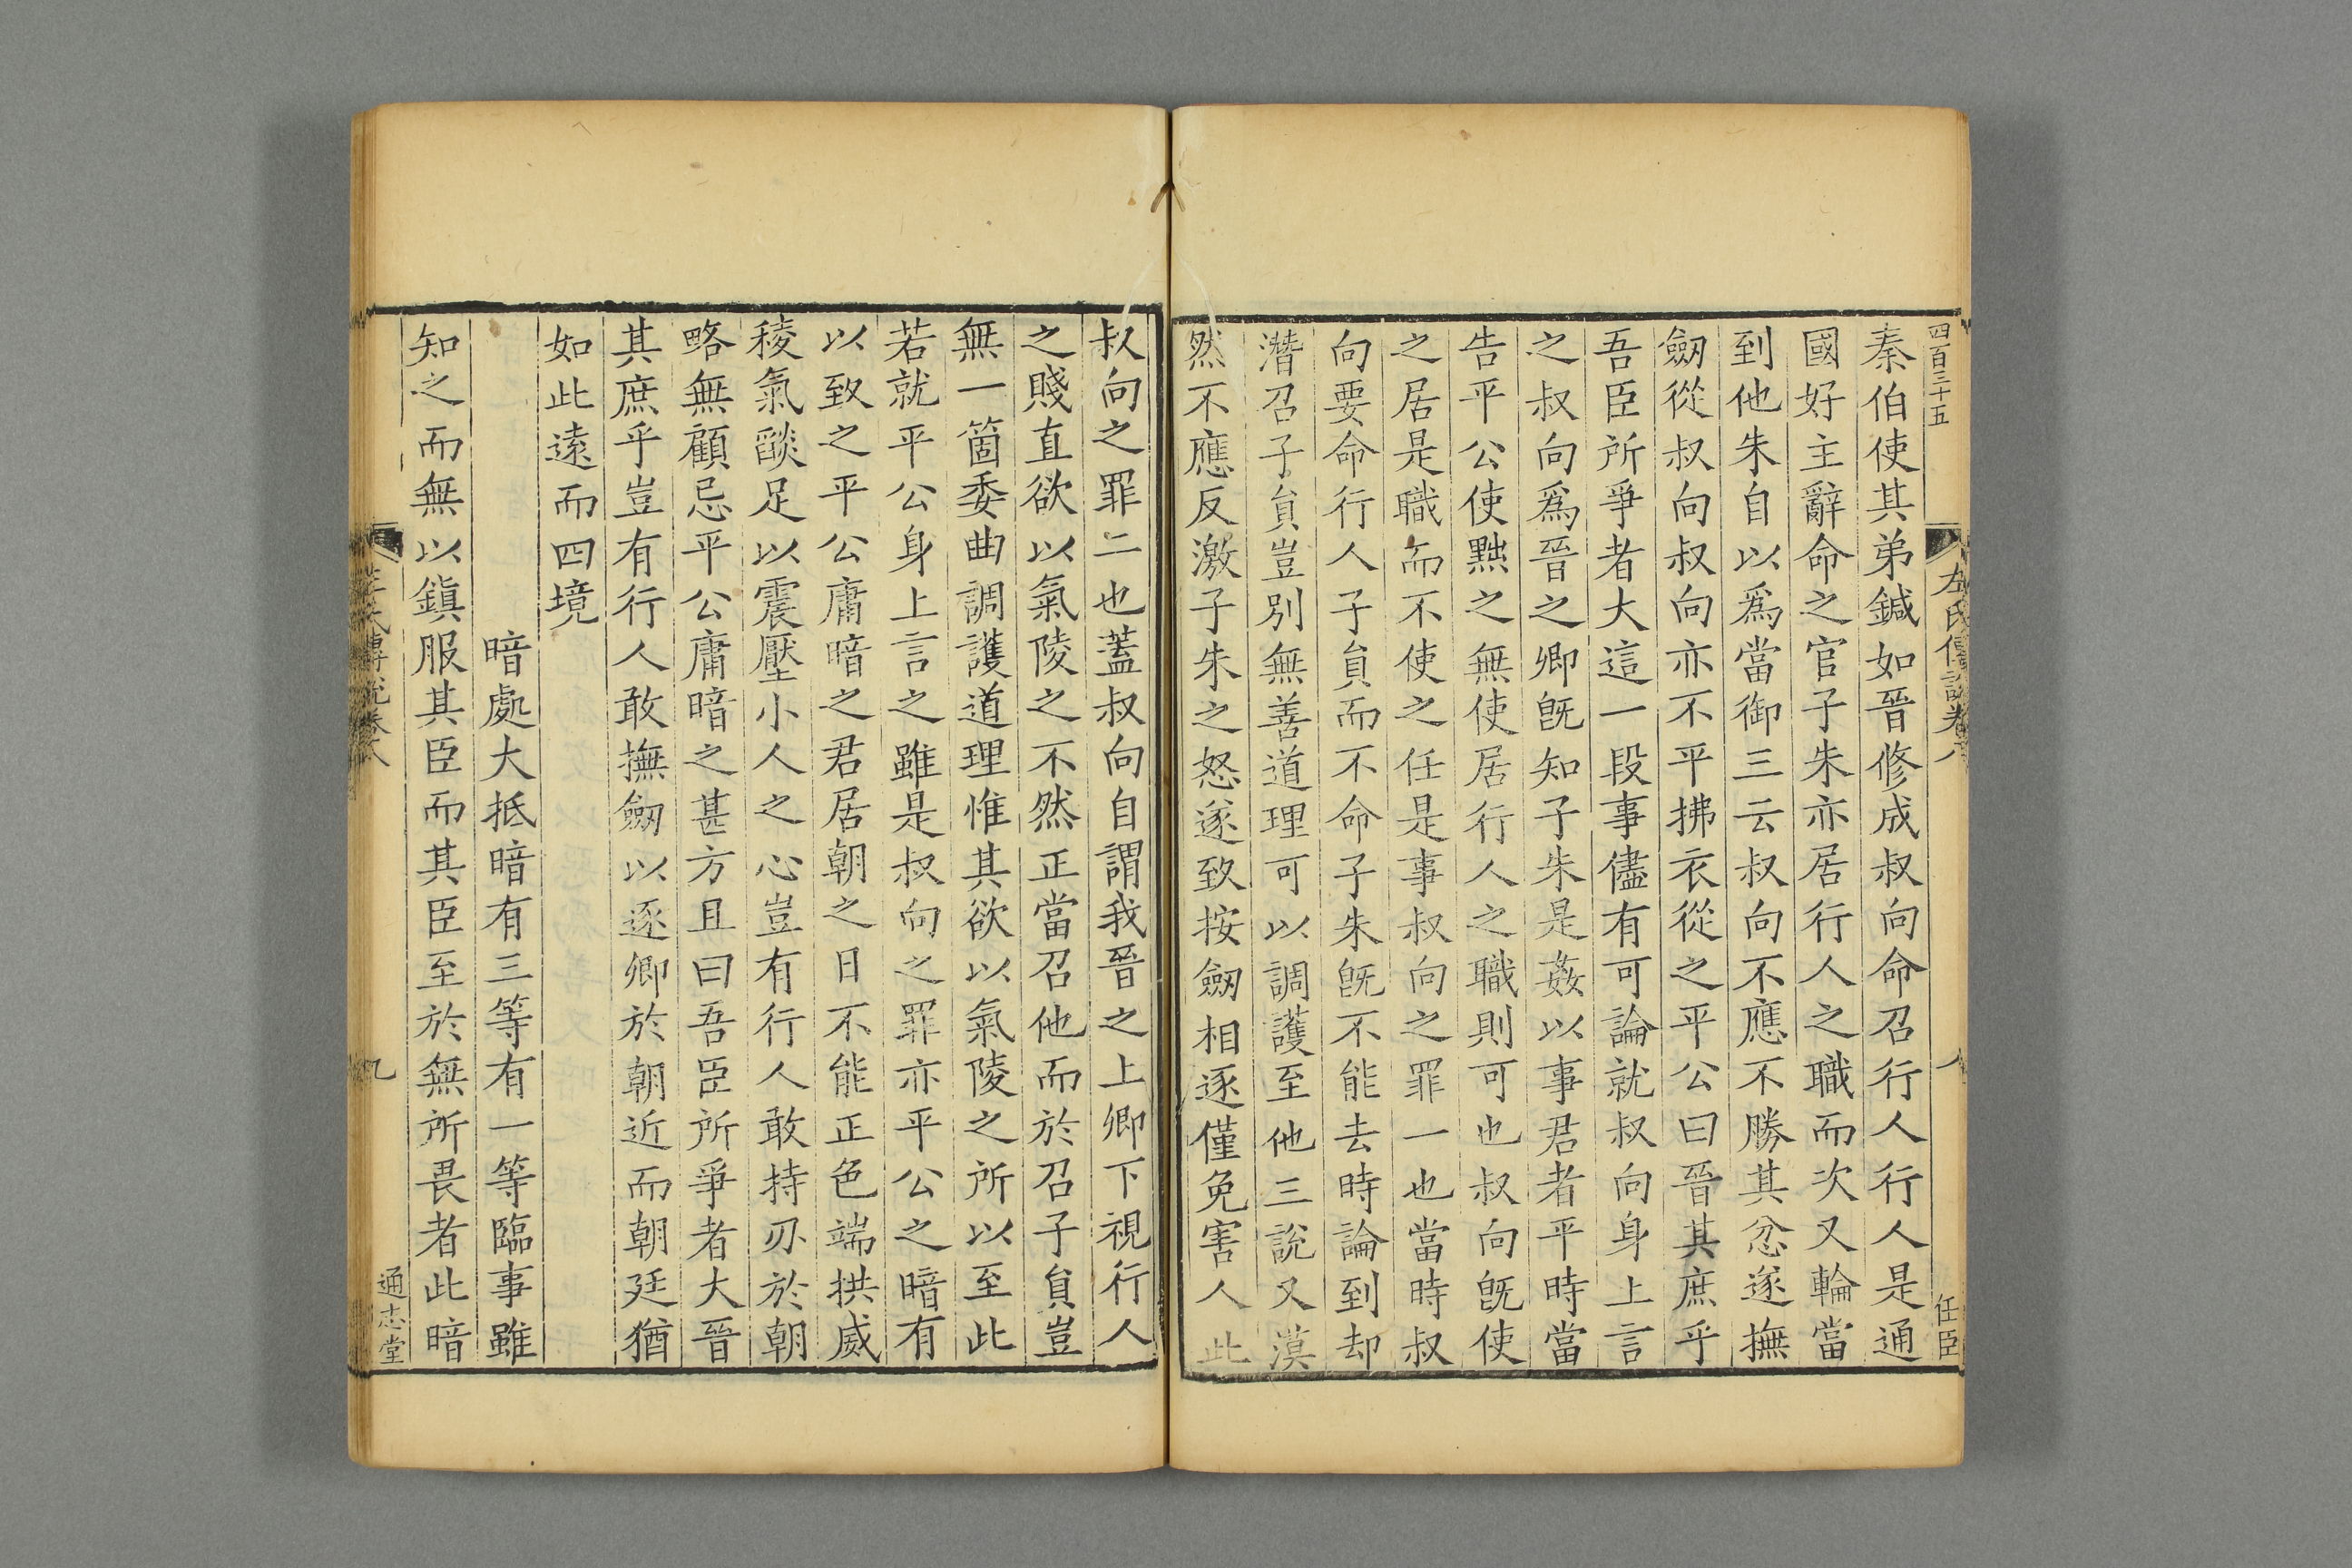 四百三十五
左氏傳說卷八
八
任臣
秦伯使其弟鍼如晉修成叔向命召行人行人是通
國好主辭命之官子朱亦居行人之職而次又輪當
到他朱自以爲當御三云叔向不應不勝其忿遂撫
劒從叔向叔向亦不平拂衣從之平公曰晉其庶乎
吾臣所爭者大這一段事儘有可論就叔向身上言
之叔向爲晉之卿旣知子朱是姦以事君者平時當
告平公使黜之無使居行人之職則可也叔向旣使
之居是職而不使之任是事叔向之罪一也當時叔
向要命行人子貟而不命子朱旣不能去時論到却
潛召子貟豈別無善道理可以調護至他三說又漠
然不應反激子朱之怒遂致按劒相逐僅免害人此
叔向之罪二也蓋叔向自謂我晉之上卿下視行人
之賤直欲以氣陵之不然正當召他而於召子貟豈
無一箇委曲調護道理惟其欲以氣陵之所以至此
若就平公身上言之雖是叔向之罪亦平公之暗有
以致之平公庸暗之君居朝之日不能正色端拱威
稜氣燄足以震壓小人之心豈有行人敢持刃於朝
略無顧忌平公庸暗之甚方且曰吾臣所爭者大晉
其庶乎豈有行人敢撫劒以逐卿於朝近而朝廷猶
如此遠而四境
暗處大抵暗有三等有一等臨事雖
知之而無以鎮服其臣而其臣至於無所畏者此暗
左氏傳說卷八
九
通志堂